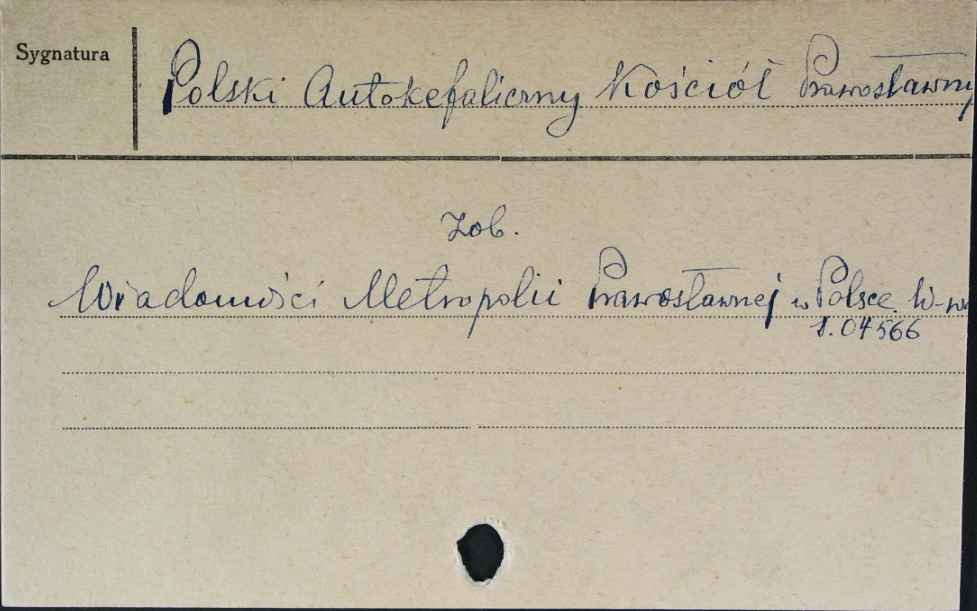 Sygnatura
Polski Autokefaliczny Kościół Prawosławny
Zob.
Wiadomości Metropolii Prawosławnej w Polsce W-wa
S. 04566